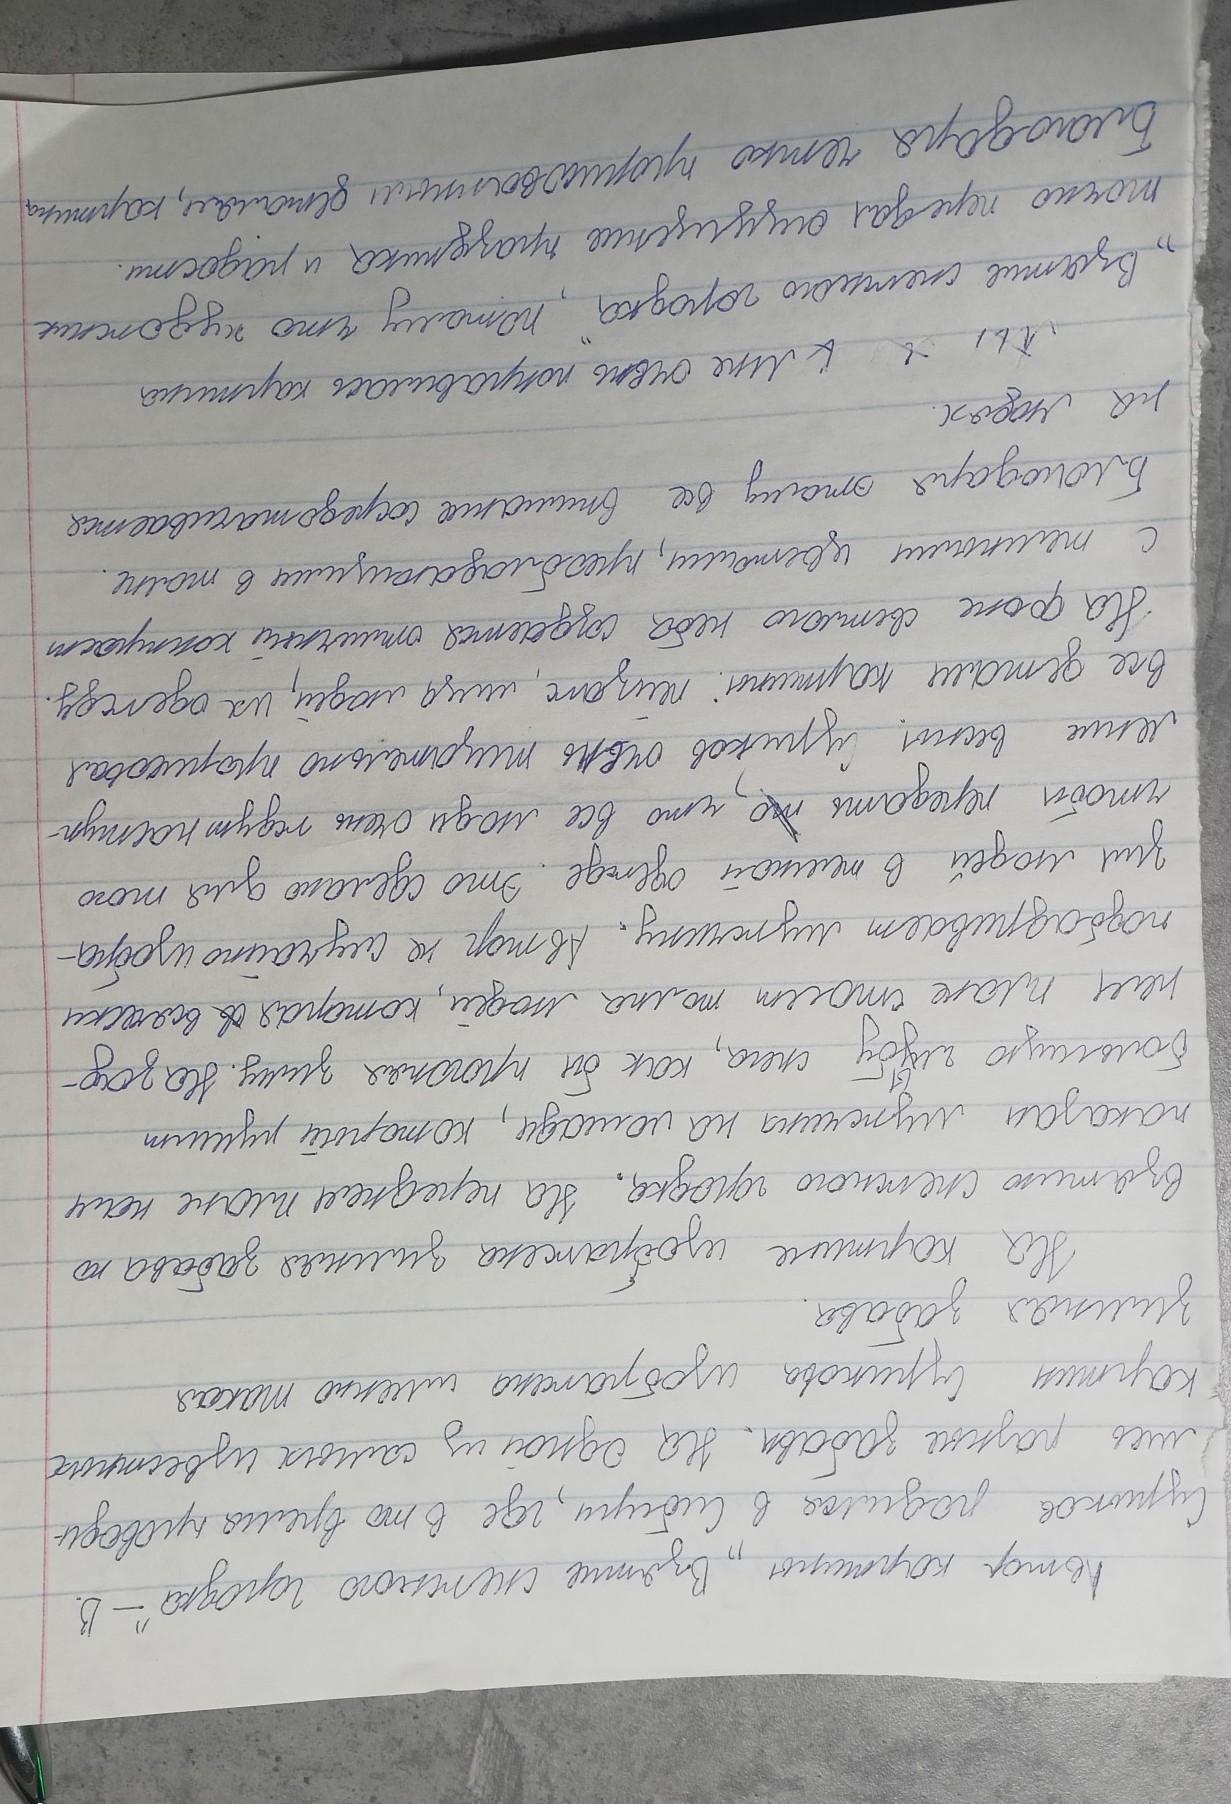 Автор картины „Взятие снежного городка" – В.
Суриков родился в Сибири, где в то время проводи-
лись разные забавы. На одной из самых известных
картин Сурикова изображена именно такая
зимняя забава.
На картине изображена зимняя забава по
взятию снежного городка. На переднем плане нам
показан мужчина на лошади, который рушит
большую глыбу снега, как бы прогоняя зиму. На зад-
нем плане стоит толпа людей, которая всячески
подбадривает мужчину. Автор не случайно изобра-
зил людей в темной одежде. Это сделано для того
чтобы передать то, что все люди очень ждут наступ-
ление весны. Суриков очень тщательно прорисовал
все детали картины: пейзаж, лица людей, их одежду.
На фоне светлого неба создается отличный контраст
с темными цветами, преобладающими в толпе.
Благодаря этому все внимание сосредотачивается
на людях.
Мне очень понравилась картина
„Взятие снежного городка", потому что художник
точно передал ощущение праздника и радости.
Благодаря четко прорисованным деталям, картина